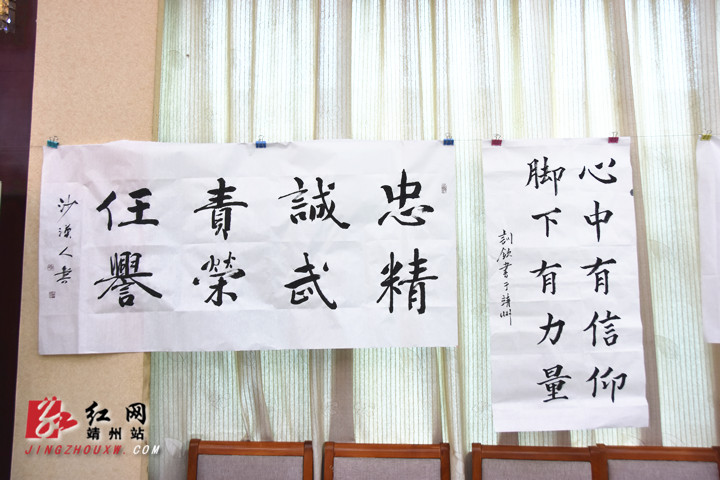 忠誠責任
精武榮譽
沙漠人書
心中有信仰
脚下有力量
書于靖州
红网
靖州站
JINGZHOUXW.COM